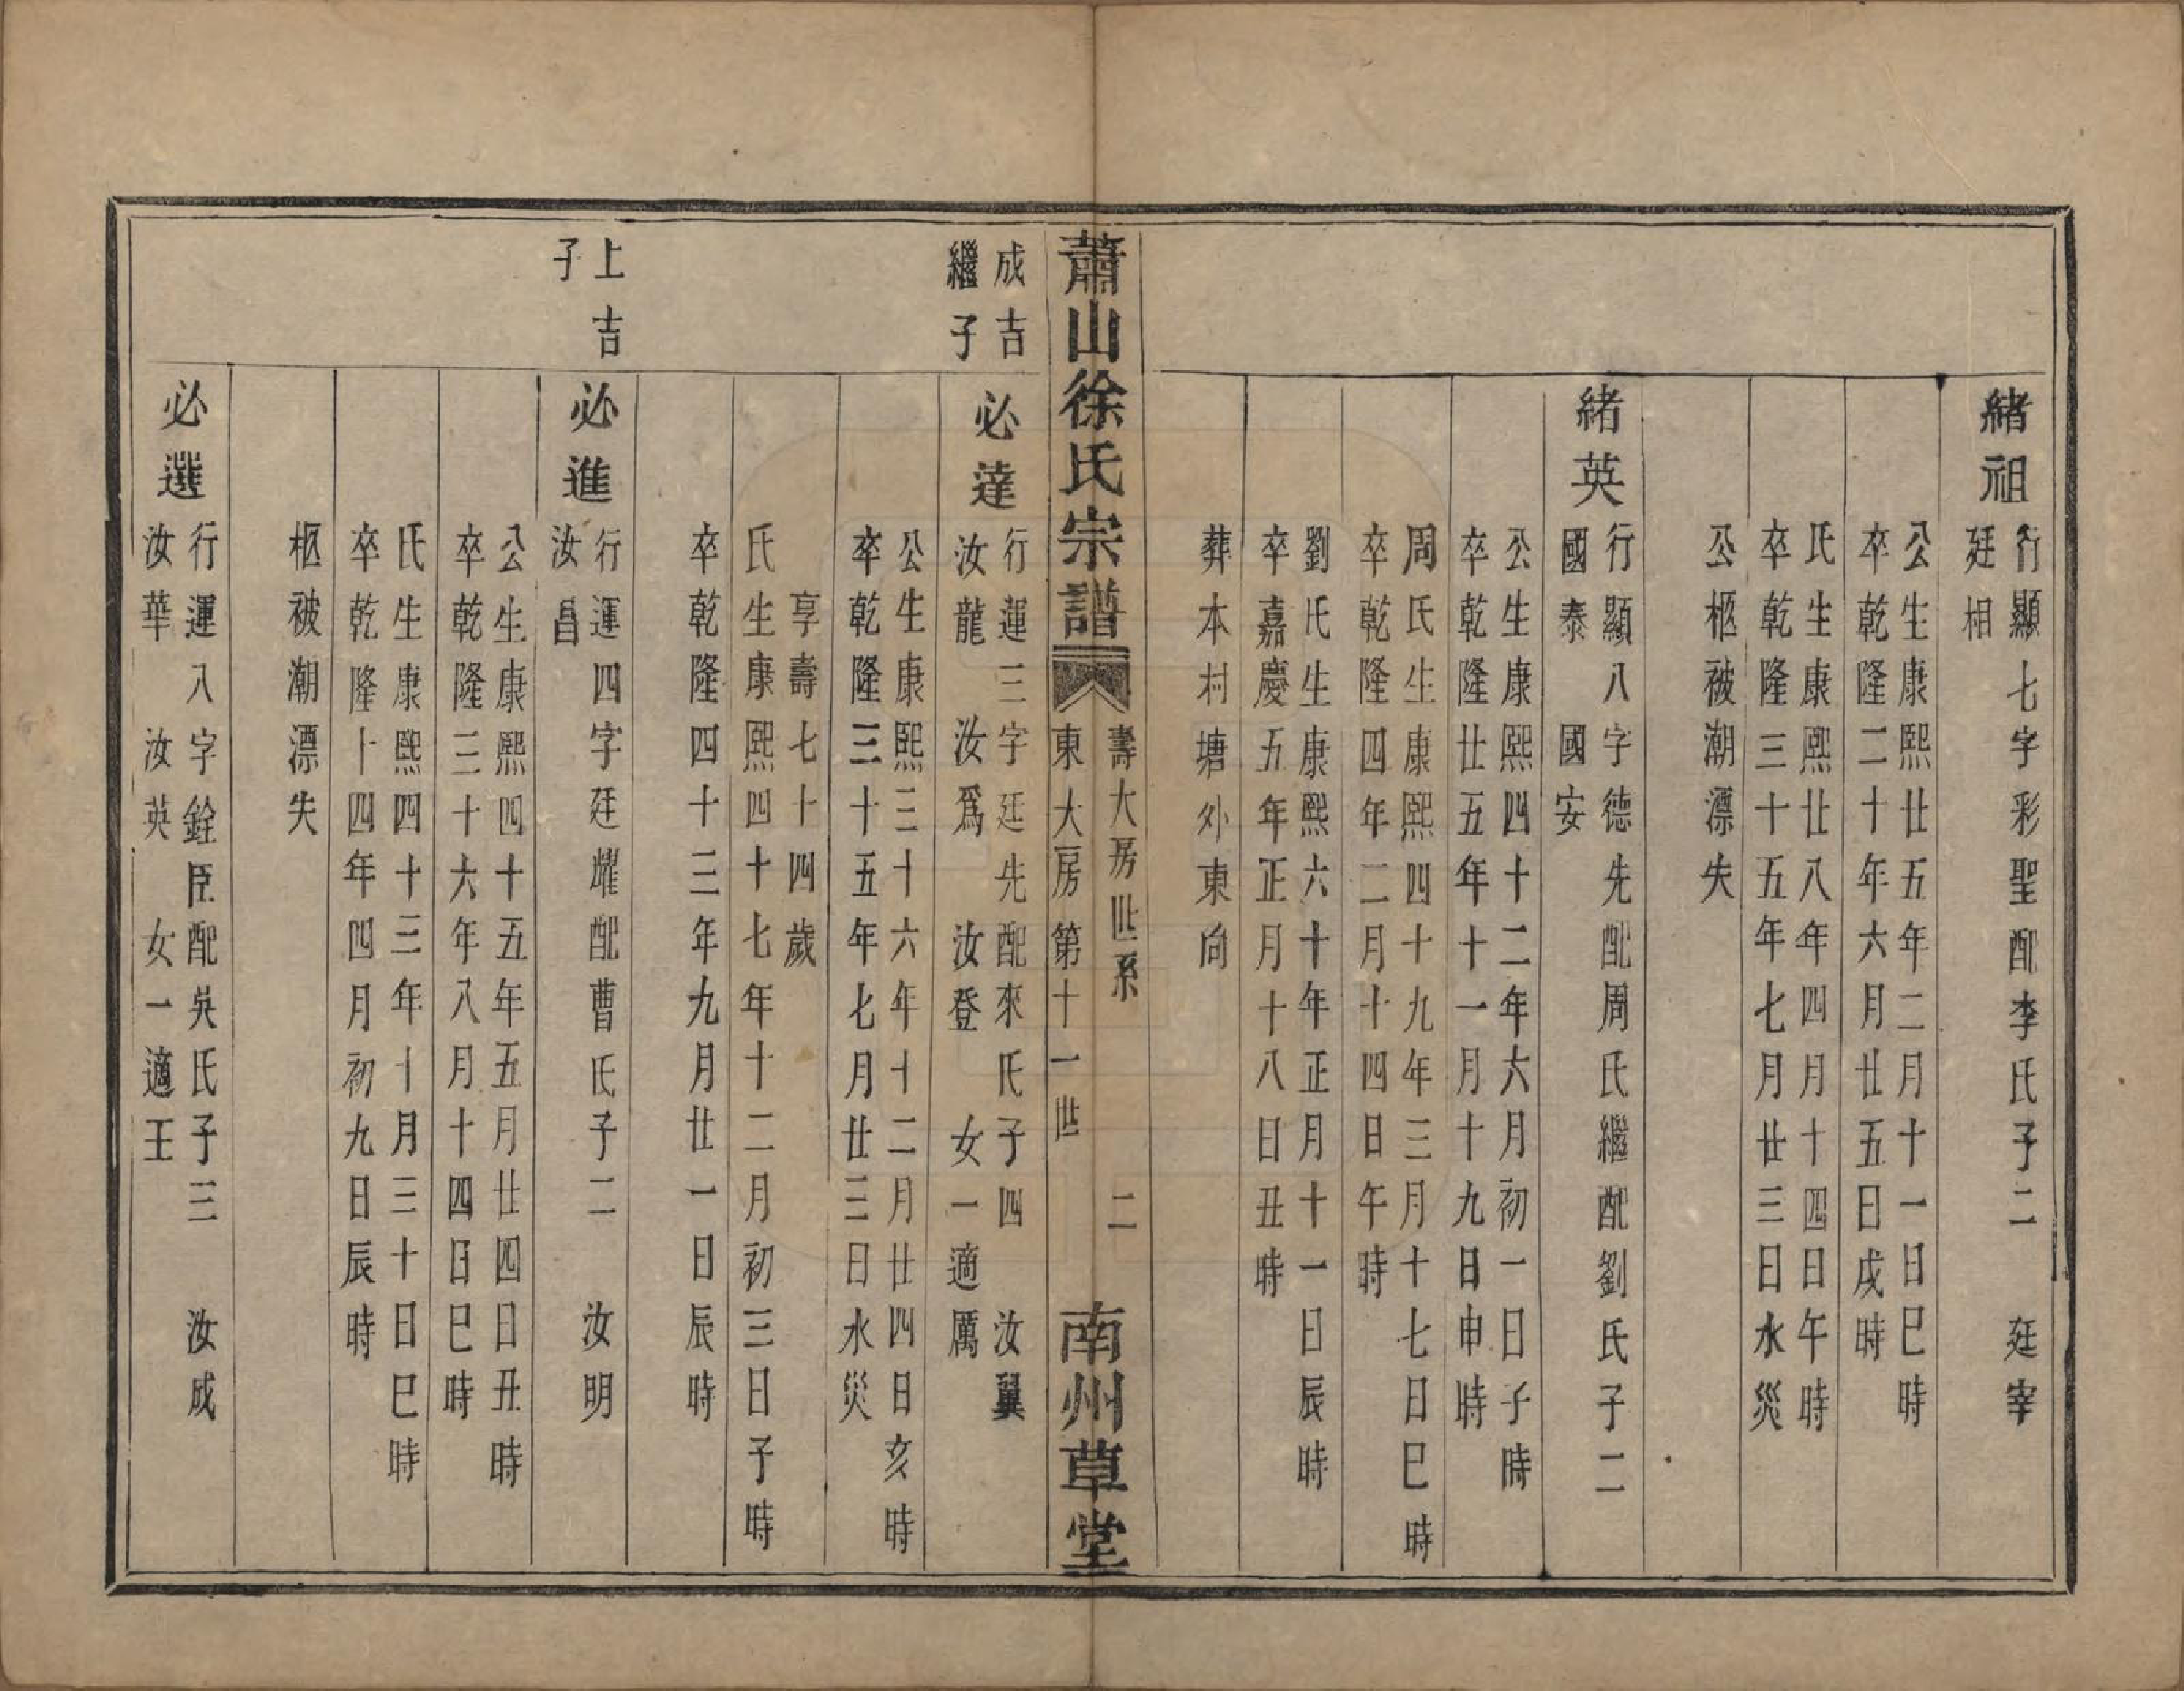 緒祖
行顯七字彩聖配李氏子二　廷宰
廷相
公生康熙廿五年二月十一日巳時
卒乾隆二十年六月廿五日戌時
氏生康熙廿八年四月十四日午時
卒乾隆三十五年七月廿三日水災
公柩被潮漂失
緒英
行顯八字德先配周氏繼配劉氏子二
國泰　國安
公生康熙四十二年六月初一日子時
卒乾隆廿五年十一月十九日申時
周氏生康熙四十九年三月十七日巳時
卒乾隆四年二月十四日午時
劉氏生康熙六十年正月十一日辰時
卒嘉慶五年正月十八日丑時
葬本村塘外東向
蕭山徐氏宗譜
壽大房世系　二
東大房第十一世
南州草堂
成吉
繼子
必達
行運三字廷先配來氏子四　汝翼
汝龍　汝爲　汝登　女一適厲
公生康熙三十六年十二月廿四日亥時
卒乾隆三十五年七月廿三日水災
享壽七十四歲
氏生康熙四十七年十二月初三日子時
卒乾隆四十三年九月廿一日辰時
上吉
子
必進
行運四字廷燿配曹氏子二　汝明
汝昌
公生康熙四十五年五月廿四日丑時
卒乾隆三十六年八月十四日巳時
氏生康熙四十三年十月三十日巳時
卒乾隆十四年四月初九日辰時
柩被潮漂失
必選
行運八字銓臣配吳氏子三　汝成
汝華　汝英　女一適王